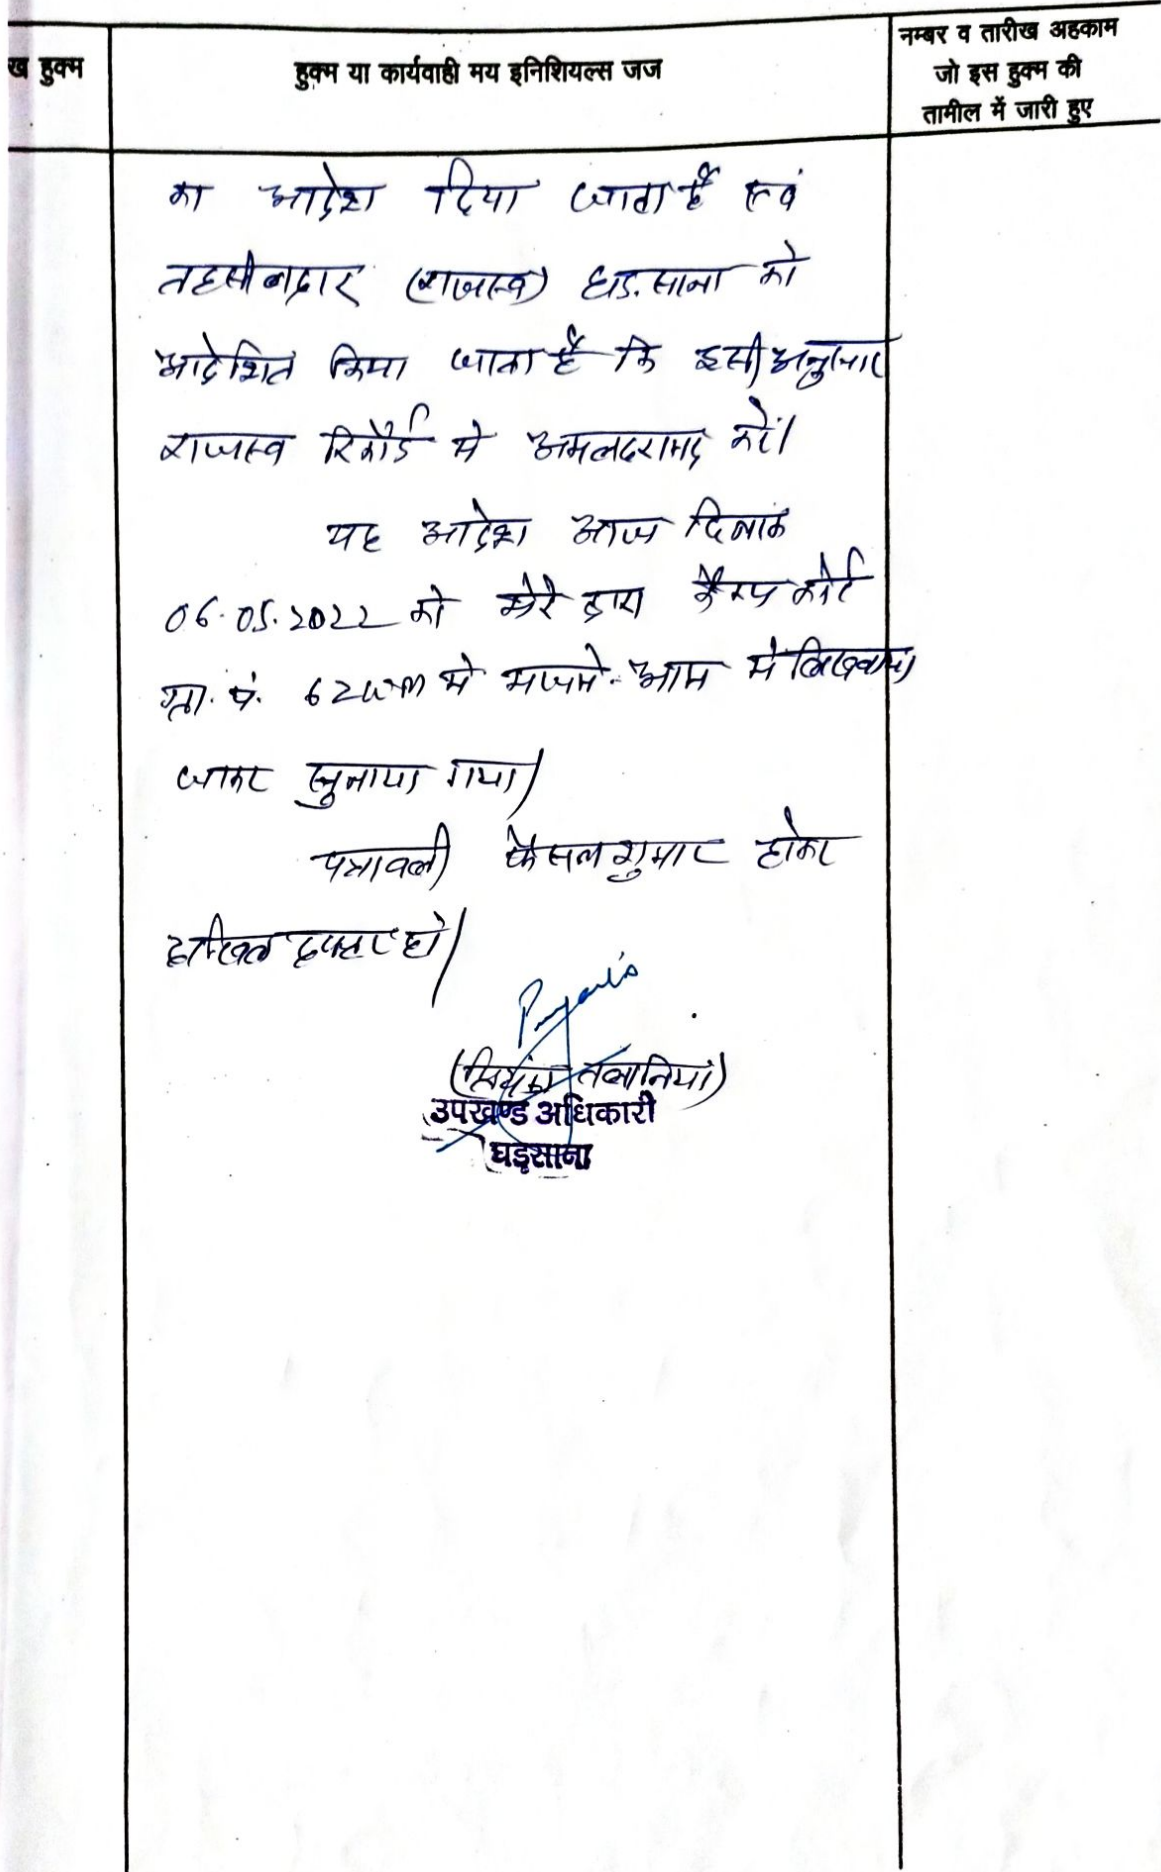 ख हुक्म
हुक्म या कार्यवाही मय इनिशियल्स जज
नम्बर व तारीख अहकाम
जो इस हुक्म की
तामील में जारी हुए
का आदेश दिया जाता है एवं
तहसीलदार (राजस्व) घड़साना को
आदेशित किया जाता है कि इसी अनुसार
राजस्व रिकॉर्ड मे अमलदरामद करें।
यह आदेश आज दिनांक
06.05.2022 को मेरे द्वारा कैम्प कोर्ट
ग्रा. पं. 6 ZWM मे मजमे-आम मे लिखवाया
जाकर सुनाया गया।
पत्रावली फैसल शुमार होकर
दाखिल दफ्तर हो।
(प्रियंका तलानिया)
उपखण्ड अधिकारी
घड़साना